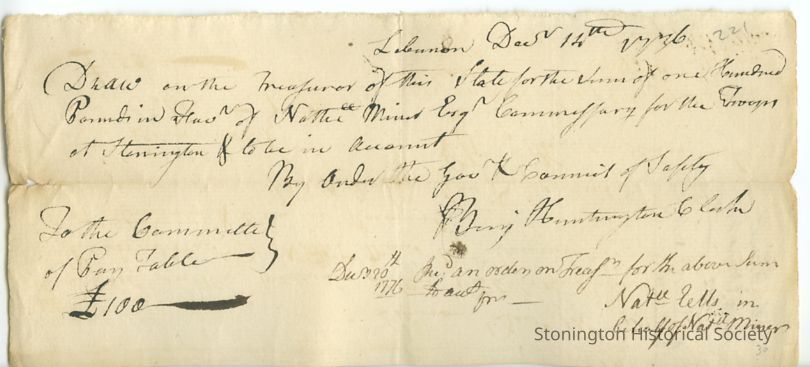 221
Lebanon Decr 14th 1776
Draw on the Treasurer of this State for the Sum of one Hundred
Pounds in Favr of Nathll Miner Esqr Commissary for the Troops
at Stonington & to be in Account
By Order the Govr & Council of Safety
Benj Huntington Clerk
To the Committee
of Pay Table
£100
Decr 20th
1776
Recd an order on Treasr for the above Sum
Natll Fells in
behalf of Natll Miner
Stonington Historical Society
30